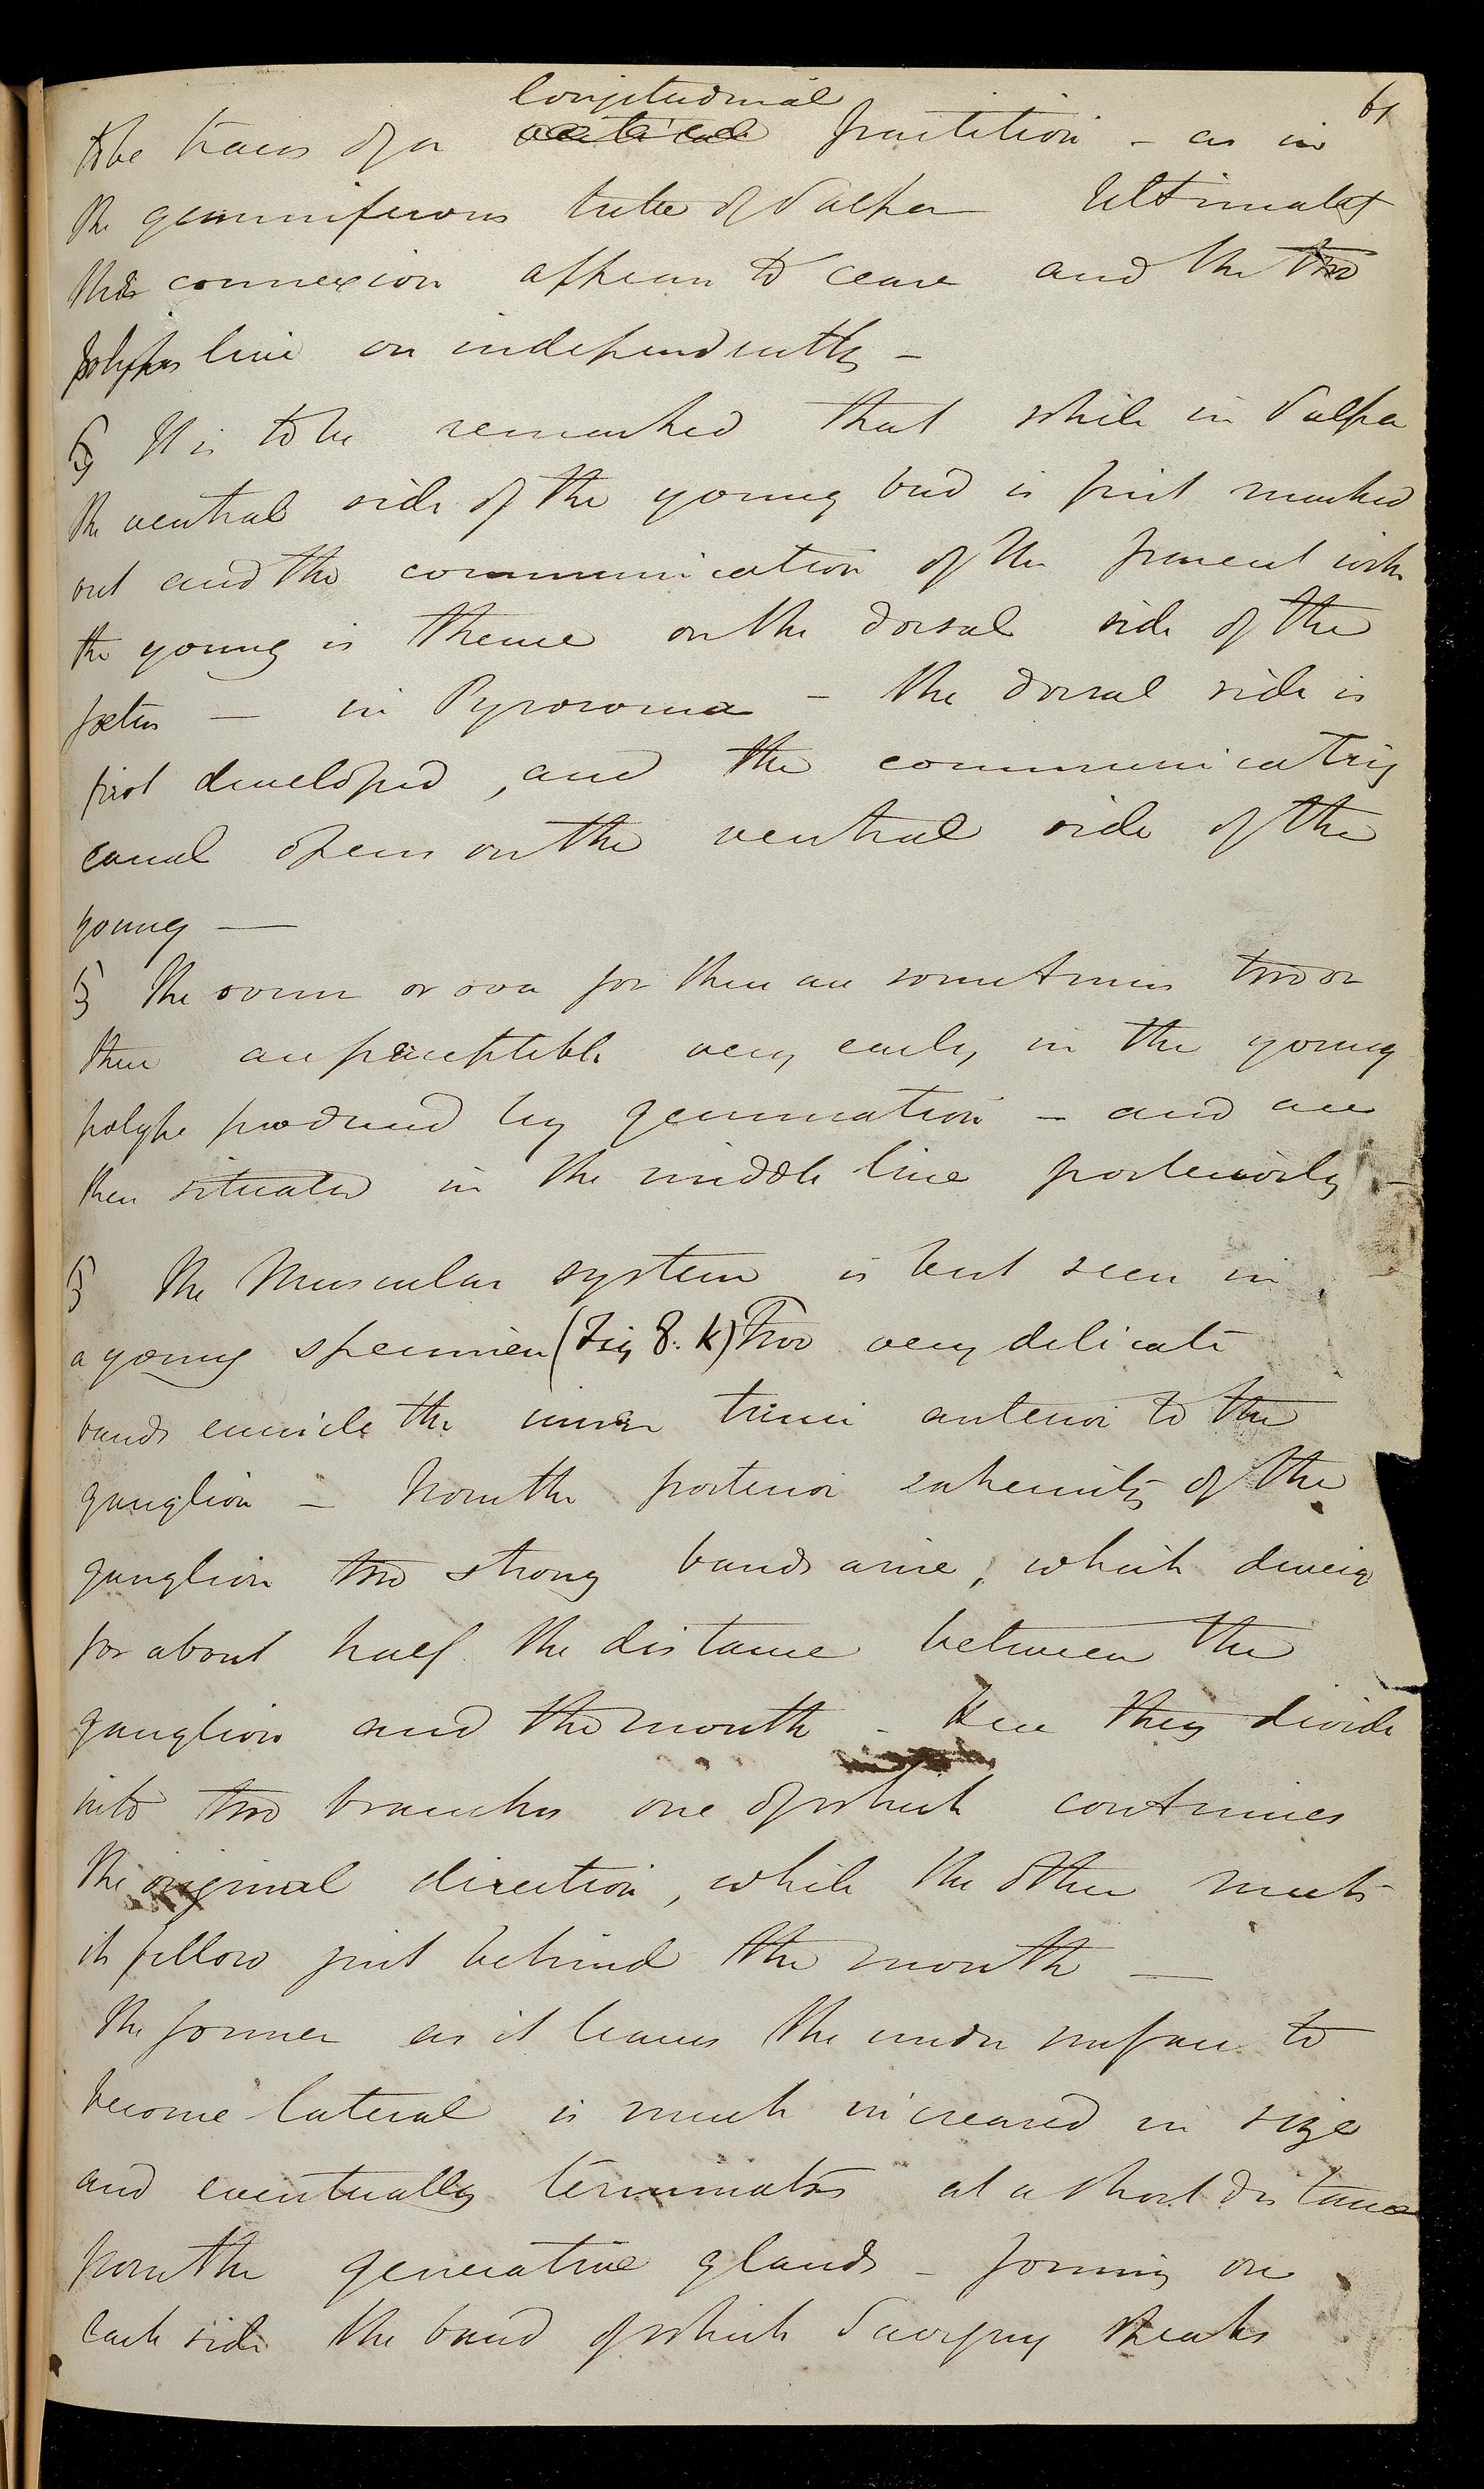 61
longitudinal
to be traces of a vertical partition - as in
the gemmiferous tube of Salpa Ultimately
this connexion appears to cease and the two
polypes live on independently -
§ It is to be remarked that while in Salpa
the ventral side of the young bud is first marked
out and the communication of the parent with
the young is thence on the dorsal side of the
fœtus — in Pyrosoma - the dorsal side is
first developed, and the communicating
canal opens on the ventral side of the
young —
§ The ovum or ova for there are sometimes two or
three are perceptible very early in the young
polype produced by gemmation - and are
then situated in the middle line posteriorly -
§ The Muscular system is best seen in
a young specimen (Fig 8. k) Two very delicate
bands encircle the inner tunic anterior to the
ganglion - From the posterior extremity of the
ganglion two strong bands arise, which diverge
for about half the distance between the
ganglion and the mouth - Here they divide
into two branches one of which continues
the original direction, while the other meets
its fellow just behind the mouth —
The former as it leaves the under surface to
become lateral is much increased in size
and eventually terminates at a short distance
from the generative glands - forming on
each side the band of which Savigny speaks